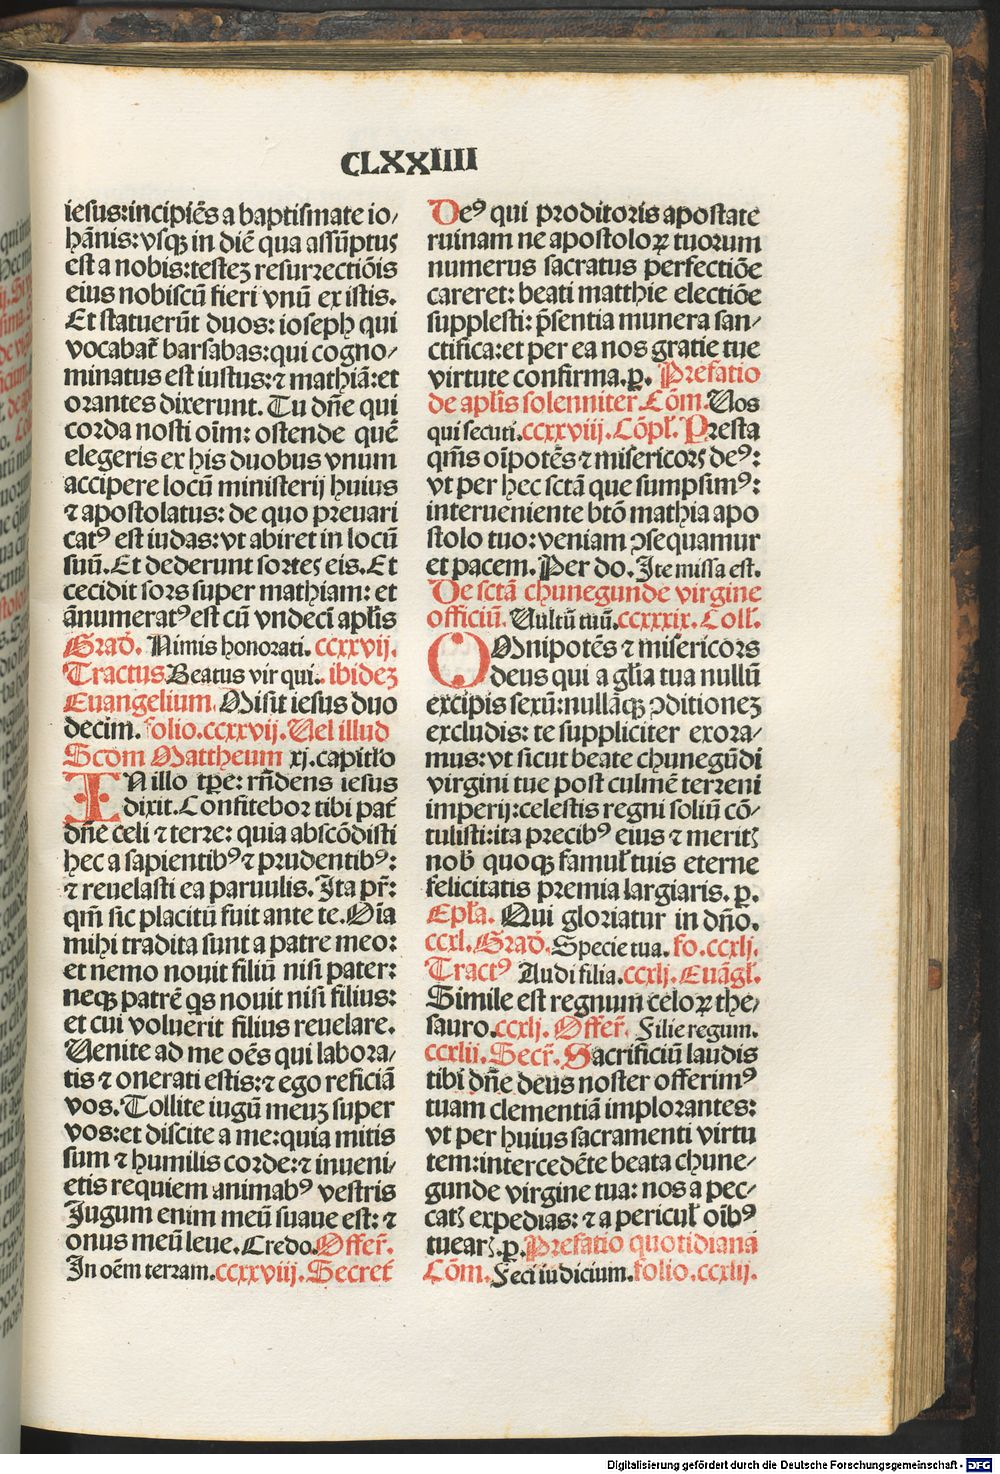 CLXXIIII
iesus:incipiẽs a baptismate io/
hãnis: vsqꝫ in diẽ qua assũptus
est a nobis:testeꝫ resurrectiõis
eius nobiscũ fieri vnũ ex istis.
Et statuerũt duos: ioseph qui
vocabat̃ barsabas:qui cogno/
minatus est iustus:⁊ mathiã:et
orantes dixerunt. Tu dñe qui
corda nosti oĩm: ostende quẽ
elegeris ex his duobus vnum
accipere locũ ministerij huius
⁊ apostolatus: de quo preuari
catꝰ est iudas:vt abiret in locũ
suũ. Et dederunt sortes eis. Et
cecidit sors super mathiam: et
ãnumeratꝰ est cũ vndeci apl̃is
Grad̃. Nimis honorati. ccxxvij.
Tractus Beatus vir qui. ibideꝫ
Euangelium. Misit iesus duo
decim. folio.ccxxvij. Uel illud
Scd̃m Mattheum xj. capitl̃o
IN illo tp̃e: rñdens iesus
dixit. Confitebor tibi pat̃
dñe celi ⁊ terre: quia abscõdisti
hec a sapientibꝰ ⁊ prudentibꝰ:
⁊ reuelasti ea paruulis. Ita pr̃:
qm̃ sic placitũ fuit ante te. Oĩa
mihi tradita sunt a patre meo:
et nemo nouit filiũ nisi pater:
neqꝫ patrẽ q̃s nouit nisi filius:
et cui voluerit filius reuelare.
Uenite ad me oẽs qui labora/
tis ⁊ onerati estis:⁊ ego reficiã
vos. Tollite iugũ meuꝫ super
vos:et discite a me:quia mitis
sum ⁊ humilis corde:⁊ inueni/
etis requiem animabꝰ vestris
Iugum enim meũ suaue est: ⁊
onus meũ leue. Credo. Offer̃.
In oẽm terram. ccxxviij. Secret̃
Deꝰ qui proditoris apostate
ruinam ne apostoloꝝ tuorum
numerus sacratus perfectiõe
careret: beati matthie electiõe
supplesti: p̃sentia munera san/
ctifica:et per ea nos gratie tue
virtute confirma. ꝑ. Prefatio
de apl̃is solenniter Cõm. Uos
qui secuti. ccxxviij. Cõpl̃. Presta
qm̃s oĩpotẽs ⁊ misericors deꝰ:
vt per hec sctã que sumpsimꝰ:
interueniente btõ mathia apo
stolo tuo: veniam ↄsequamur
et pacem. Per do. Ite missa est.
De sctã chunegunde virgine
officiũ. Uultũ tuũ. ccxxxix. Coll̃.
OMnipotẽs ⁊ misericors
deus qui a gl̃ia tua nullũ
excipis sexũ:nullãqꝫ ↄditioneꝫ
excludis: te suppliciter exora/
mus: vt sicut beate chunegũdi
virgini tue post culmẽ terreni
imperij: celestis regni soliũ cõ/
tulisti:ita precibꝰ eius ⁊ meritꝭ
nob̃ quoqꝫ famul̃ tuis eterne
felicitatis premia largiaris. ꝑ.
Epl̃a. Qui gloriatur in dño.
ccxl. Grad̃. Specie tua. fo. ccxlj.
Tractꝰ Audi filia. ccxlj. Euãgl̃.
Simile est regnum celoꝝ the/
sauro. ccxlj. Offer̃. Filie regum.
ccxlij. Secr̃. Sacrificiũ laudis
tibi dñe deus noster offerimꝰ
tuam clementiã implorantes:
vt per huius sacramenti virtu
tem:intercedẽte beata chune/
gunde virgine tua: nos a pec/
catꝭ expedias: ⁊ a pericul̃ oĩbꝰ
tuearꝭ. ꝑ. Prefatio quotidiana
Cõm. Feci iudicium. folio.ccxlij.
Digitalisierung gefördert durch die Deutsche Forschungsgemeinschaft - DFG